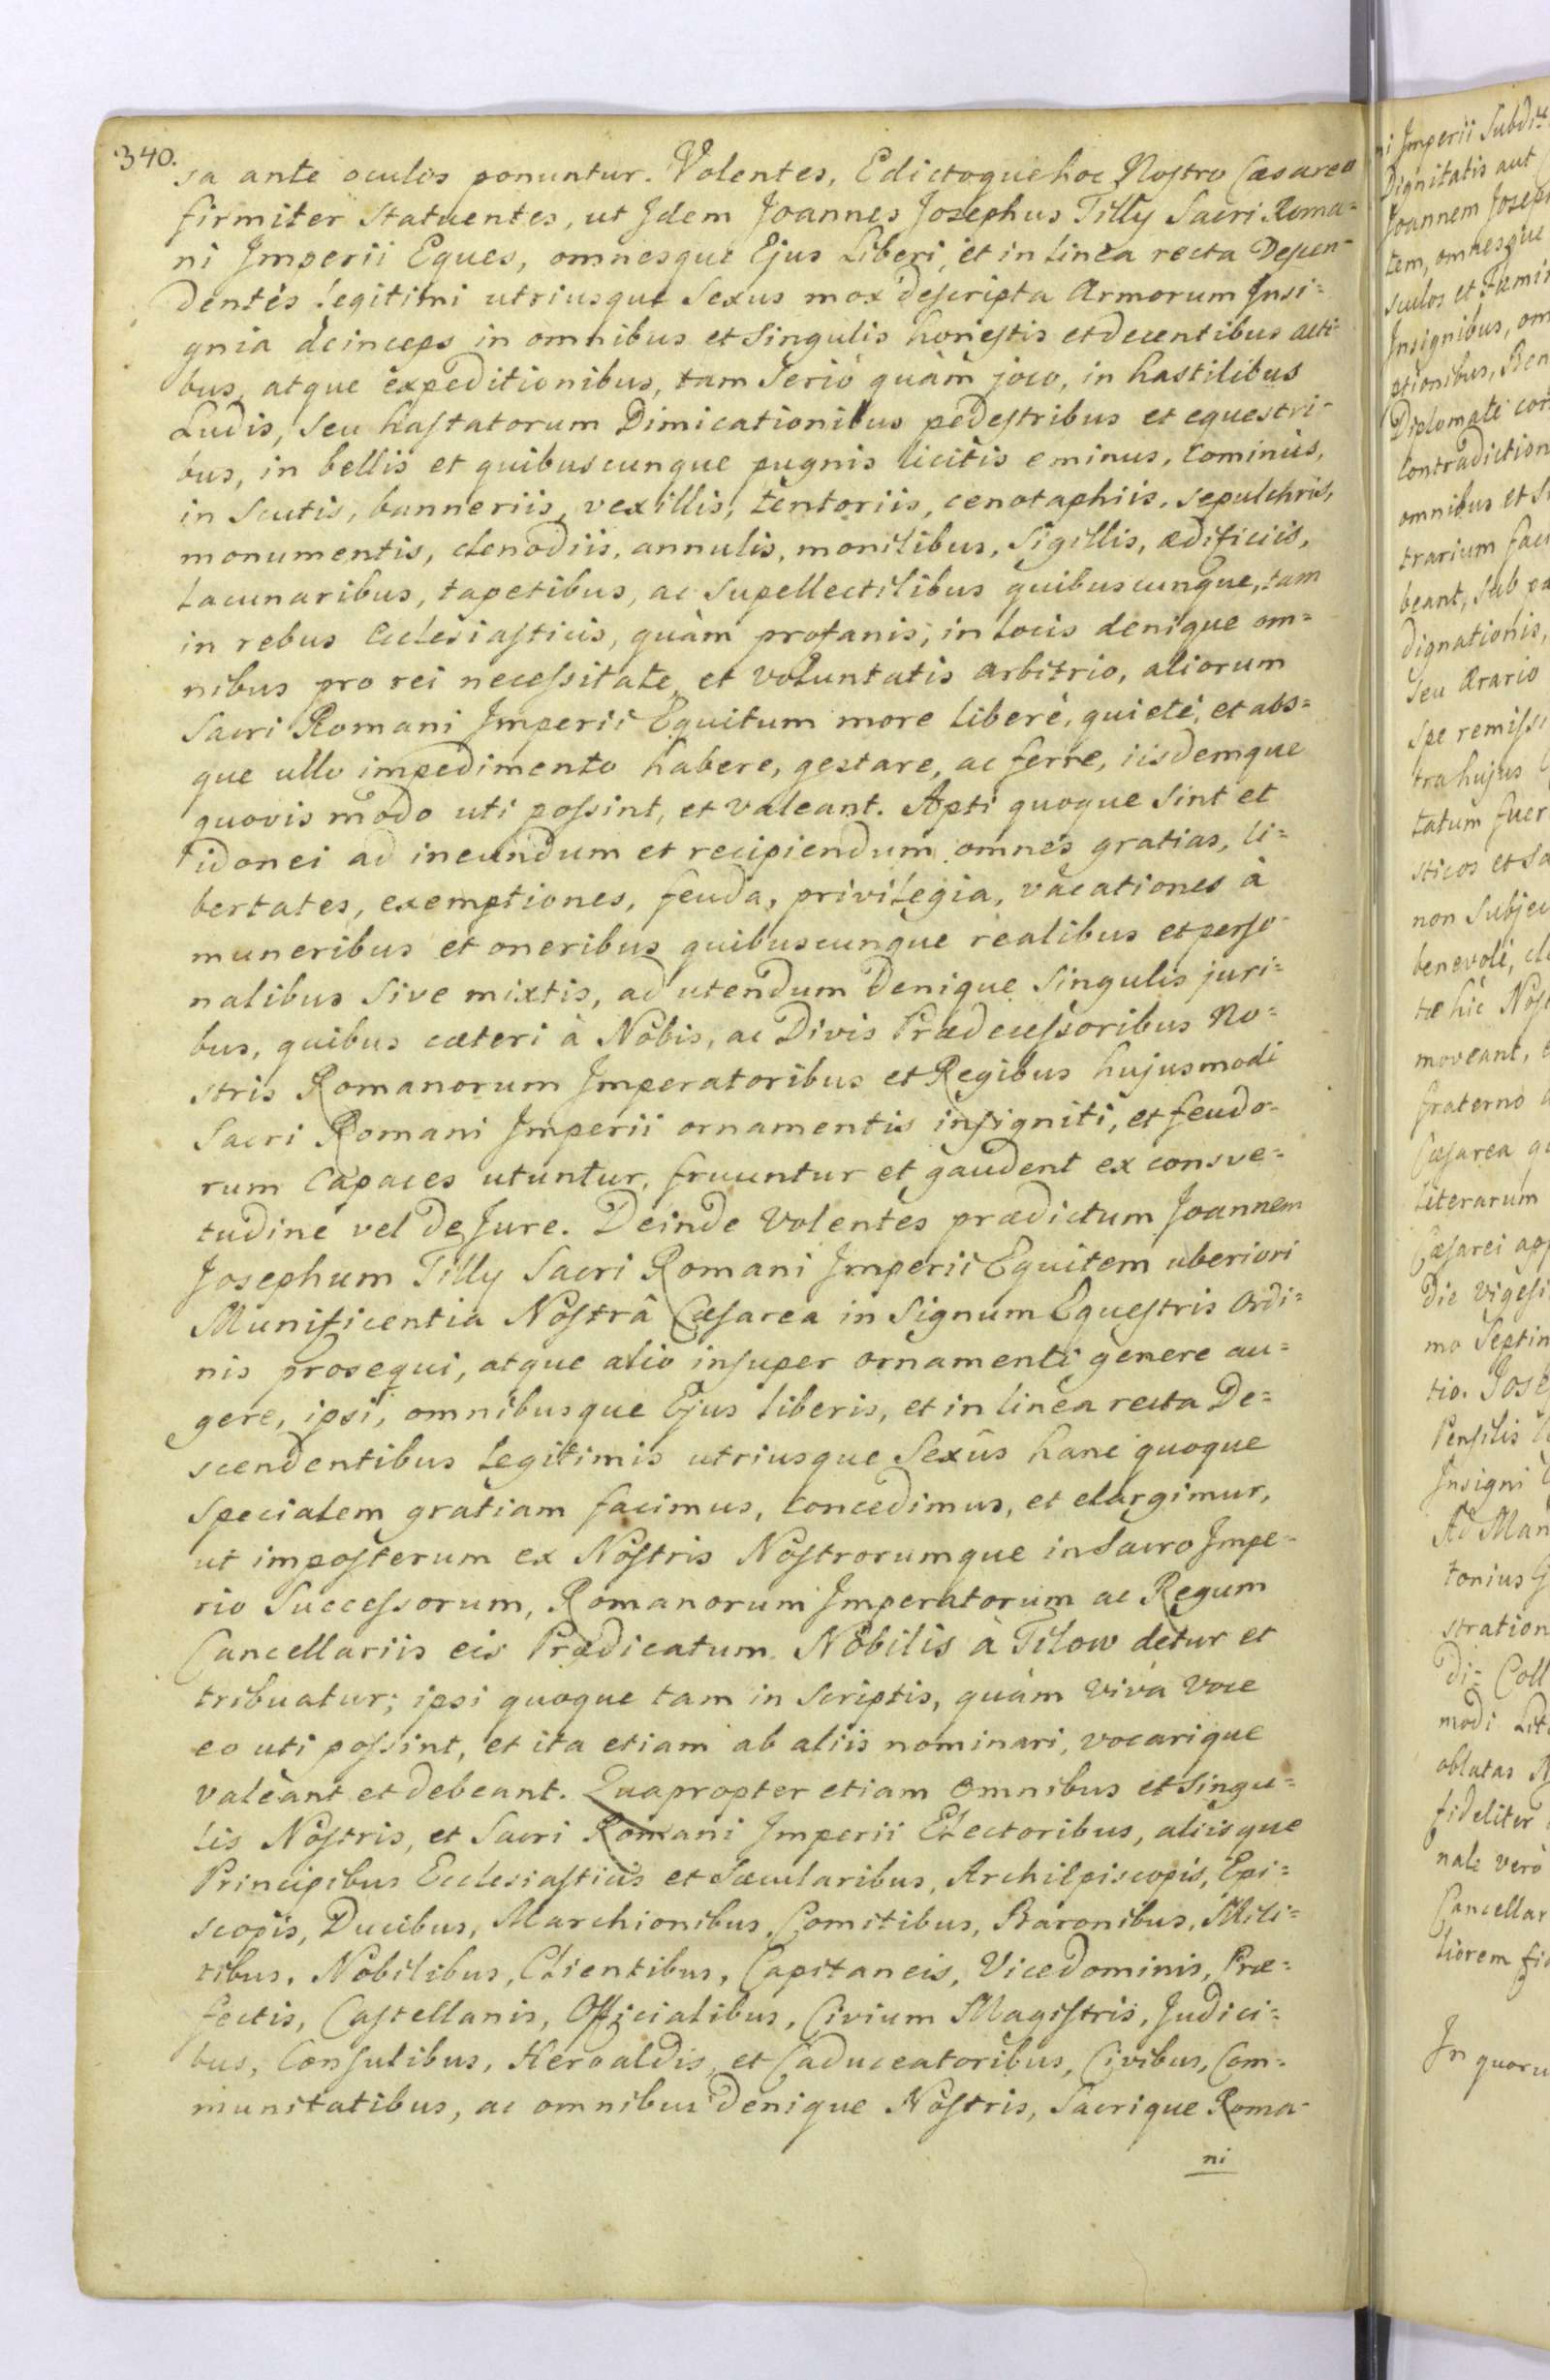 340.
sa ante oculos ponuntur. Volentes, Edictoque hoc Nostro Cæsareo
firmiter statuentes, ut Idem Joannes Josephus Tilly Sacri Roma=
ni Imperii Eques, omnesque Ejus Liberi, et in linea recta Descen=
dentes legitimi utriusque Sexus mox descripta Armorum Insi=
gnia deinceps in omnibus et singulis honestis et decentibus acti=
bus, atque expeditionibus, tam Seriò quàm joco, in hastilibus
Ludis, seu hastatorum Dimicationibus pedestribus et equestri=
bus, in bellis et quibuscunque pugnis licitis eminus, Cominùs,
in Scutis, banneriis, vexillis, tentoriis, cenotaphiis, sepulchris,
monumentis, clenodiis, annulis, monilibus, Sigillis, ædificiis,
Lacunaribus, tapetibus, ac Supellectilibus quibuscunque, tam
in rebus Ecclesiasticis, quàm profanis, in locis denique om=
nibus pro rei necessitate, et voluntatis arbitrio, aliorum
Sacri Romani Imperii Equitum more liberè, quietè, et abs=
que ullo impedimento habere, gestare, ac ferre, iisdemque
quovis modo uti possint, et valeant. Apti quoque Sint et
idonei ad ineundum et recipiendum omnes gratias, li=
bertates, exemptiones, feuda, privilegia, vacationes à
muneribus et oneribus quibuscunque realibus et perso=
nalibus Sive mixtis, ad utendum Denique Singulis juri=
bus, quibus cæteri à Nobis, ac Divis Prædecessoribus No=
stris Romanorum Imperatoribus et Regibus hujusmodi
Sacri Romani Imperii ornamentis insigniti, et feudo=
rum Capaces utuntur, fruuntur et gaudent ex consve=
tudine vel de Jure. Deinde Volentes prædictum Joannem
Josephum Tilly Sacri Romani Imperii Equitem uberiori
Munificentia Nostrâ Cæsarea in Signum Equestris Ordi=
nis prosequi, atque alio insuper ornamenti genere au=
gere, ipsi, omnibusque Ejus liberis, et in linea recta De=
scendentibus Legitimis utriusque Sexûs hanc quoque
Specialem gratiam facimus, Concedimus, et elargimur,
ut imposterum ex Nostris Nostrorumque in Sacro Impe=
rio Successorum, Romanorum Imperatorum ac Regum
Cancellariis eis Prædicatum Nobilis à Tilow detur et
tribuatur; ipsi quoque tam in Scriptis, quàm vivâ voce
eo uti possint, et ita etiam ab aliis nominari, vocarique
valeant et debeant. Quapropter etiam Omnibus et Singu=
lis Nostris, et Sacri Romani Imperii Electoribus, aliisque
Principibus Ecclesiasticis et Sæcularibus, ArchiEpiscopis, Epi=
scopis, Ducibus, Marchionibus, Comitibus, Baronibus, Mili=
tibus, Nobilibus, Clientibus, Capitaneis, Vicedominis, Præ=
fectis, Castellanis, Officialibus, Civium Magistris, Judici=
bus, Consulibus, Heroaldis, et Caduceatoribus, Civibus, Com=
munitatibus, ac omnibus Denique Nostris, Sacrique Roma=
ni
ni Imperii Subdit
Dignitatis aut
Joannem Joseph
tem, omnesque
sculos et Fami
Insignibus, om
ptionibus, Ben
Diplomate con
Contradiction
omnibus et S
trarium fac
beant, Sub pæ
dignationis,
Seu Ærario
Spe remiss
tra hujus
tatum fuer
sticos et Sa
non Subjec
benevolè, cl
tæ hic Nost
moveant,
fraterno
Cæsarea
Literarum
Cæsarei app
die vigesi
mo Septin
tio. Jose
Pensilis
Insigni
Ad Man
tonius
stration
di= Coll
modi Lit
oblatas
fideliter
nali verò
Cancellar
liorem fi
In quoru